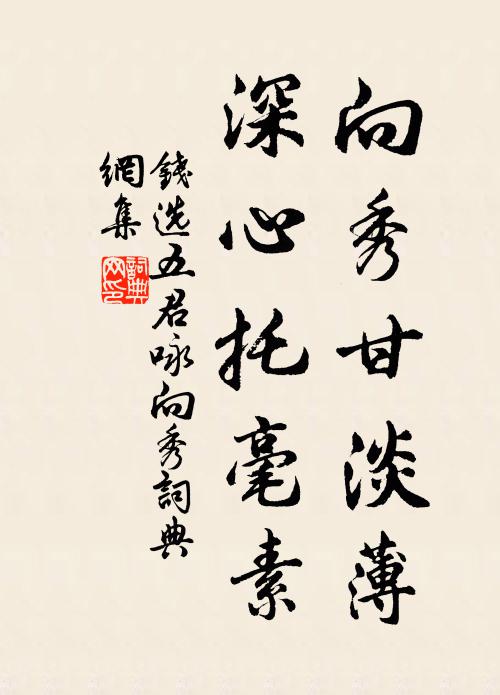 向秀甘淡薄
深心托毫素
錢选五君咏向秀詞典
網集
詞典
网印